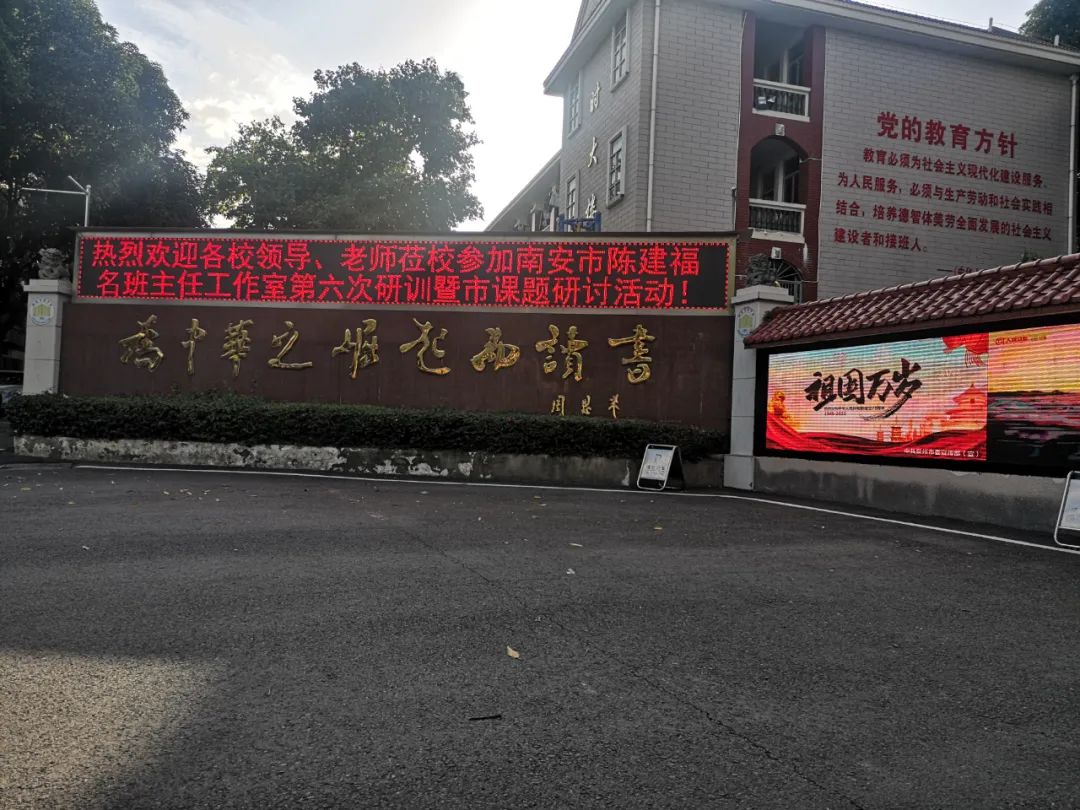 热烈欢迎各校领导、老师莅校参加南安市陈建福
名班主任工作室第六次研训暨市课题研讨活动！
為中華之崛起而讀書
周恩来
党的教育方针
教育必须为社会主义现代化建设服务、
为人民服务，必须与生产劳动和社会实践相
结合，培养德智体美劳全面发展的社会主义
建设者和接班人。
祖国万岁